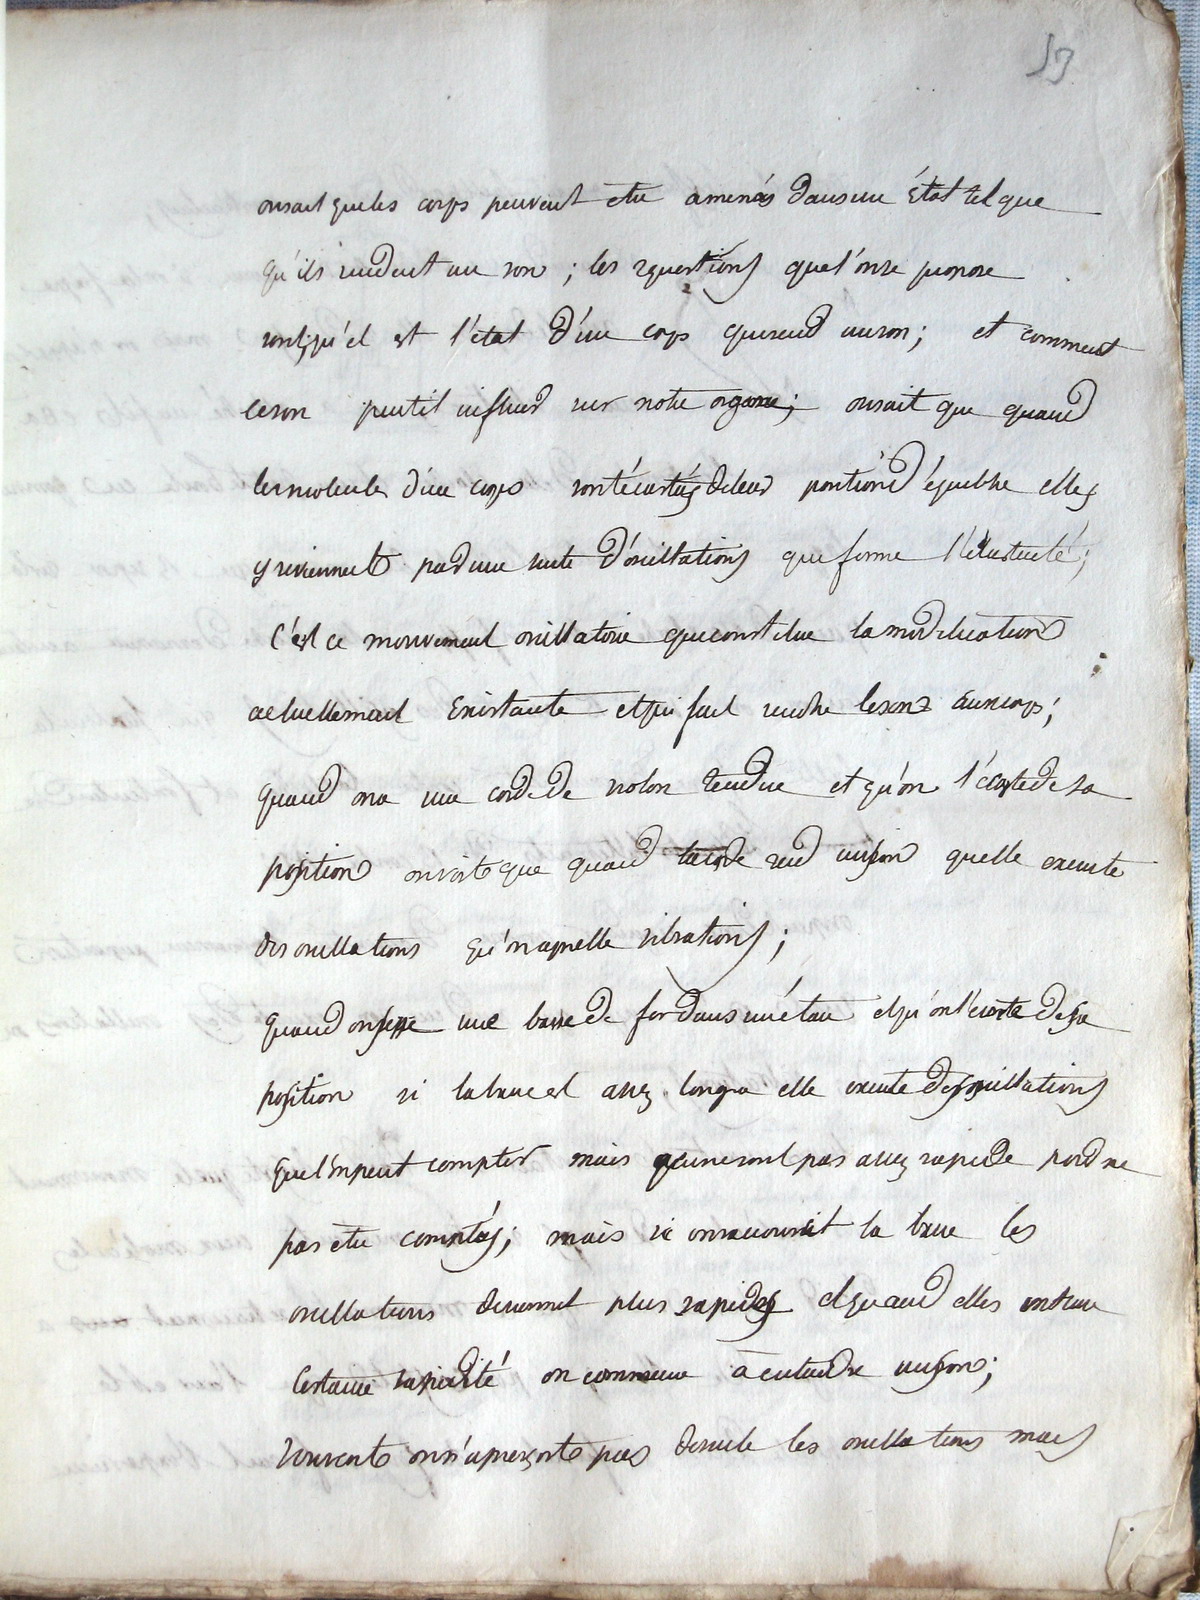 53
on sait que les corps peuvent etre amenés dans un État tel que
qu'ils rendent un son ; les questions que l'on se propose
sont, qu'el est l'état d'un corps qui rend un son ; et comment
ce son peut il influer sur notre organe ; on sait que quand
les molecules d'un corps sont écartés de leur position d'équilibre elles
y reviennent par une suite d'oscillations que forme l'élasticité ;
C'est ce mouvement oscillatoire qui constitue la modification
actuellement Existante et qui fait rendre le son aux corps ;
quand on a une corde de violon tendue et qu'on l'écarte de sa
position on voit que quand la corde rend un son quelle execute
des oscillations qu'on apelle vibrations ;
quand on fixe une barre de fer dans un étau et qu'on l'écarte de sa
position si la barre est assez longue elle execute des oscillations
que l'on peut compter mais qui ne sont pas assez rapide pour ne
pas etre comptés ; mais si on raccourcit la barre les
oscillations deviennent plus rapides et quand elles ont une
Certaine rapidité on commence à entendre un son ;
souvent on n'aperçoit pas de suite les oscillations mais